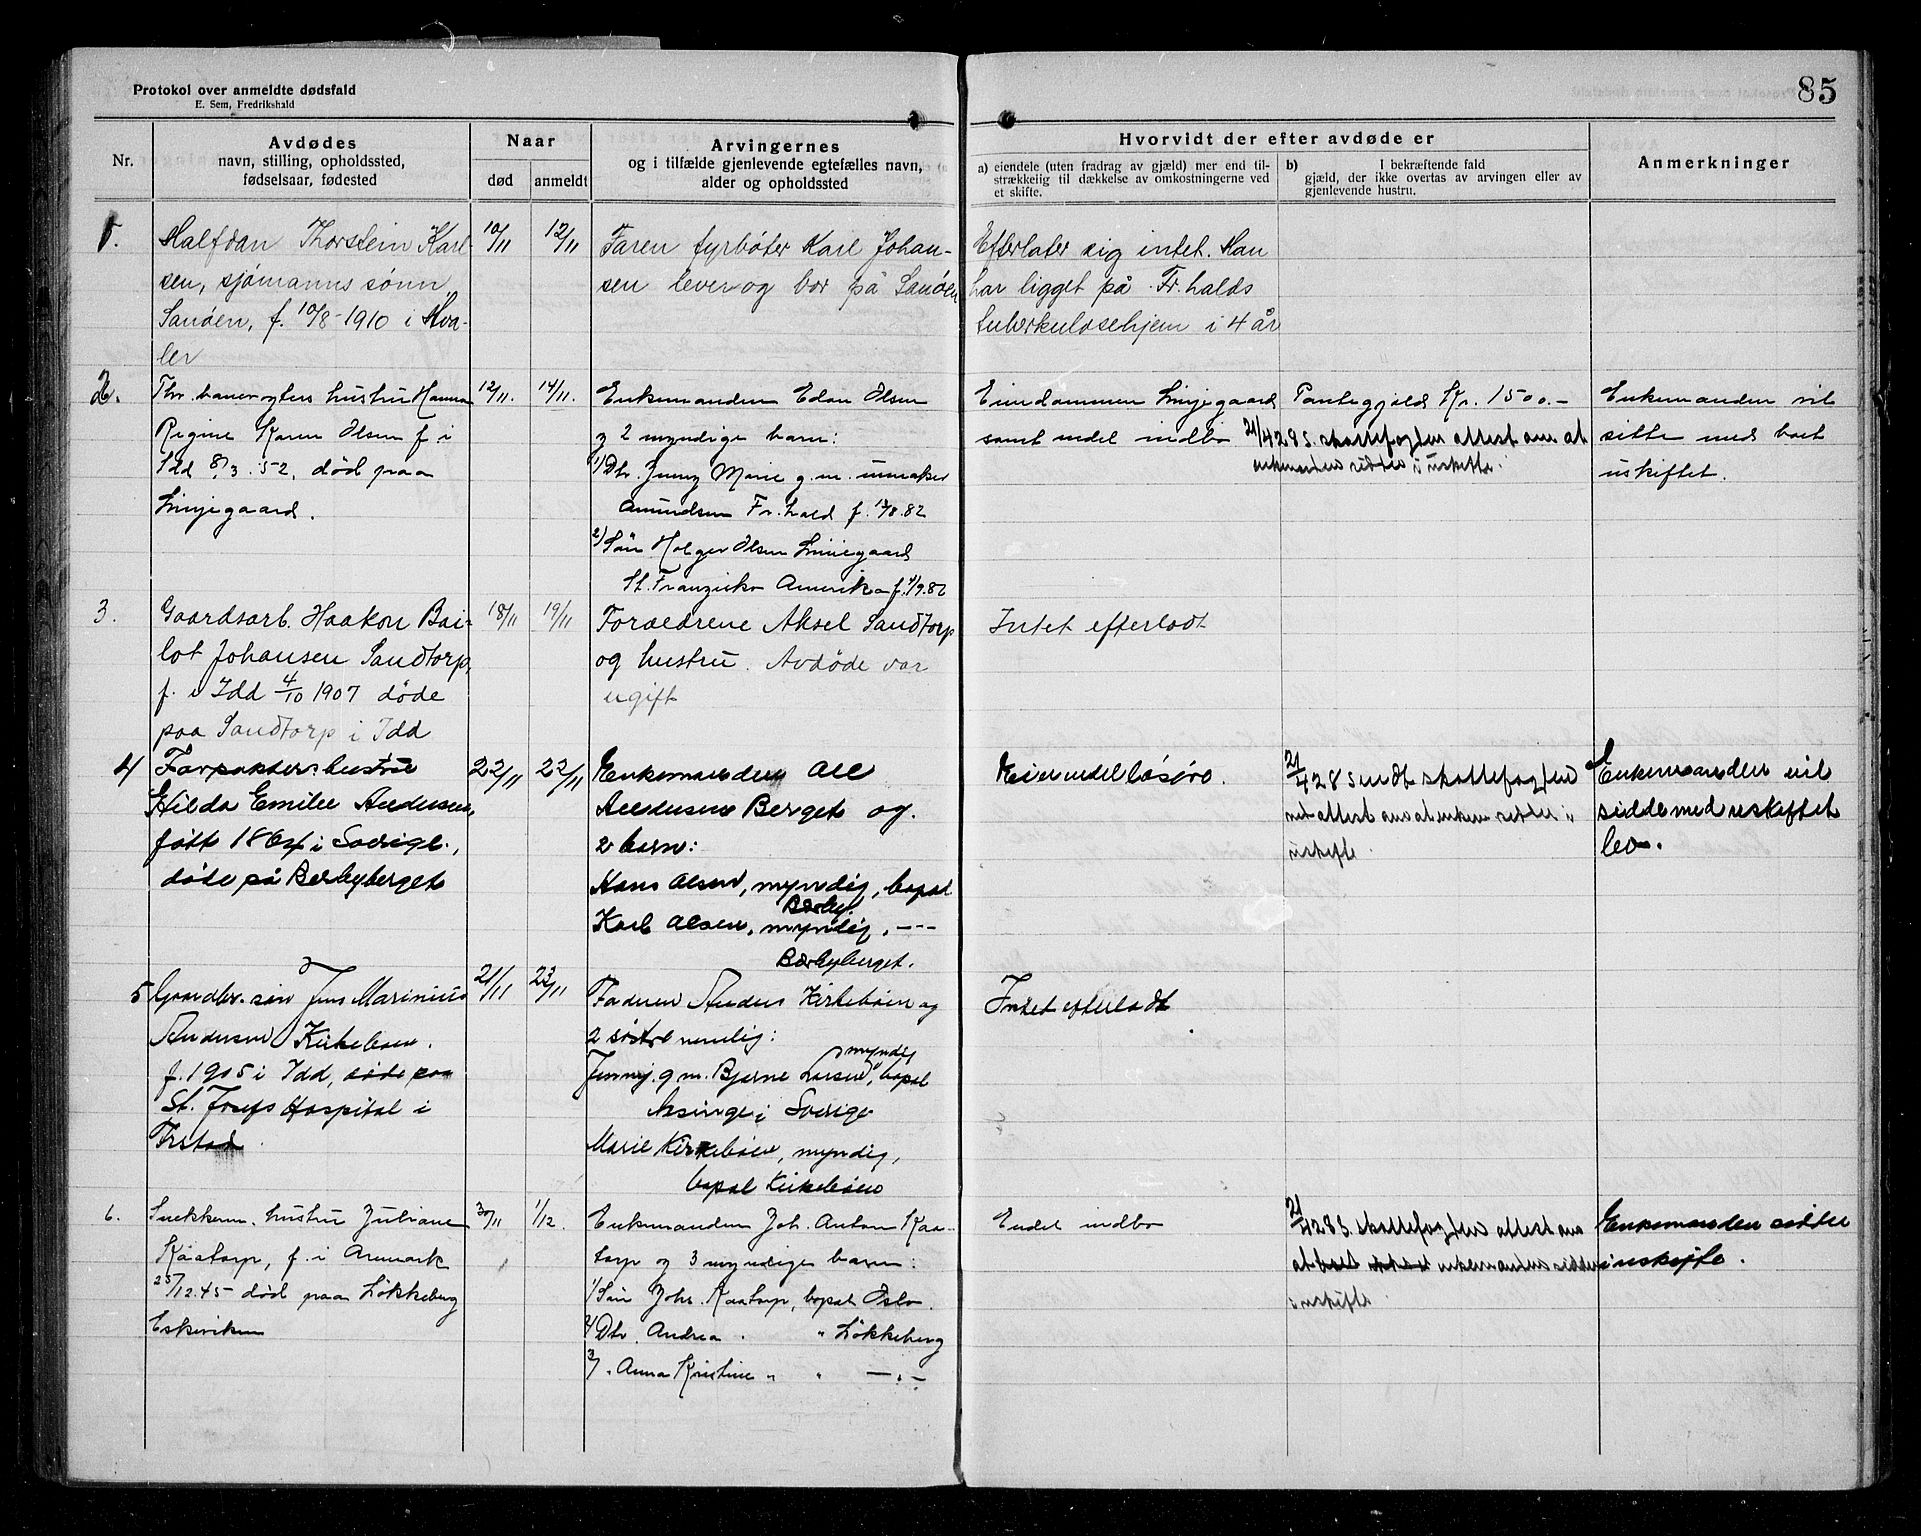 85
Protokol over anmeldte dødsfald
E. Sem, Fredrikshald
Nr.
Avdødes
navn, stilling, opholdssted,
fødselsaar, fødested
Naar
død
anmeldt
Arvingernes
og i tilfælde gjenlevende egtefælles navn,
alder og opholdssted
Hvorvidt der efter avdøde er
a) eiendele (uten fradrag av gjæld) mer end til-
strækkelig til dækkelse av omkostningerne ved
et skifte.
b) I bekræftende fald
gjæld, der ikke overtas av arvingen eller av
gjenlevende hustru.
Anmerkninger
1.
Halfdan Thorstein Karl-
sen, sjømanns sønn
Sandøen, f. 10/8-1910 i Hva-
ler
10/11
12/11
Faren fyrbøter Karl Johan-
sen lever og bor på Sandøen
Efterlater sig intet. Han
har ligget på Fr.halds
tuberkulosehjem i 4 år
2.
Fhv. banevogters hustru Hanna
Regine Karen Olsen f i
Idd 8/3.52, død paa
Linjegaard.
12/11.
14/11.
Enkemanden Edon Olsen
og 2 myndige barn:
1) Dtr. Jenny Marie g.m. urmaker
Amundsen Fr.hald f. 13/8.82
2) Søn Holger Olsen Linjegaard
St. Franzisko Amerika f. 1/9.86
Eiendommen Linjegaard
samt endel indbo
Pantegjæld Kr. 1500.-
21/4 28 S. skattefogden attest om at
enkemanden sidder i uskifte.
Enkemanden vil
sitte med boet
uskiftet.
3.
Gaardsarb. Haakon Bai-
lot Johansen Sandtorp,
f. i Idd 4/10 1907 døde
paa Sandtorp i Idd
18/11
19/11
Forældrene Aksel Sandtorp
og hustru. Avdøde var
ugift
Intet efterladt
4
Forpakters hustru
Hilda Emilie Andersen,
født 1864 i Sverige.,
døde på Berbyberget
22/11
22/11
Enkemanden Ole
Andersen Berget og
2 barn:
Hans Olsen, myndig, bopæl
Berby.
Karl Olsen, myndig, ---
Berbyberget.
Eier endel løsøre.
21/4 28 Sendt skattefogden
attest om at enkem sidder i
uskifte.
Enkemanden vil
sidde med uskiftet
bo.
5
Gaardbr. søn Jens Marinius
Andersen Kirkebøen.
f. 1905 i Idd, døde paa
St. Josefs Hospital i
Frstad.
21/11
23/11
Faderen Anders Kirkebøen og
2 søstre nemlig:
Jenny. g m. Bjarne Larsen, myndig bopæl
i Sverige
Marie Kirkebøen, myndig,
bopæl Kirkebøen
Intet efterladt
6.
Snekkerm. hustru Juliane
Kaatorp, f. i Aremark
25/12.45 død paa Løkkeberg
Eskeviken
30/11
1/12.
Enkemanden Joh. Anton Kaa-
torp og 3 myndige barn:
1/ Søn Johs. Kaatorp, bopæl Oslo.
2/ Dtr. Andrea " " Løkkeberg
3/ " Anna Kristine " " — " —
Endel indbo
21/4 28 S. skattefogden attest om
at enkemanden sidder
i uskifte.
Enkemanden sidder
i uskifte.